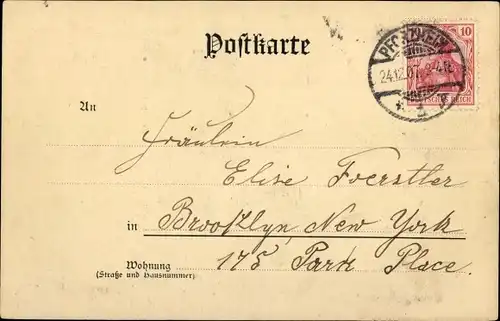 Postkarte
10
PFORZHEIM
24.12.07. 3-4N.
* 1 *
DEUTSCHES REICH
An
Fräulein
Elise Foerstler
in Brooklyn, New York
Wohnung 175 Park Place.
(Straße und Hausnummer)